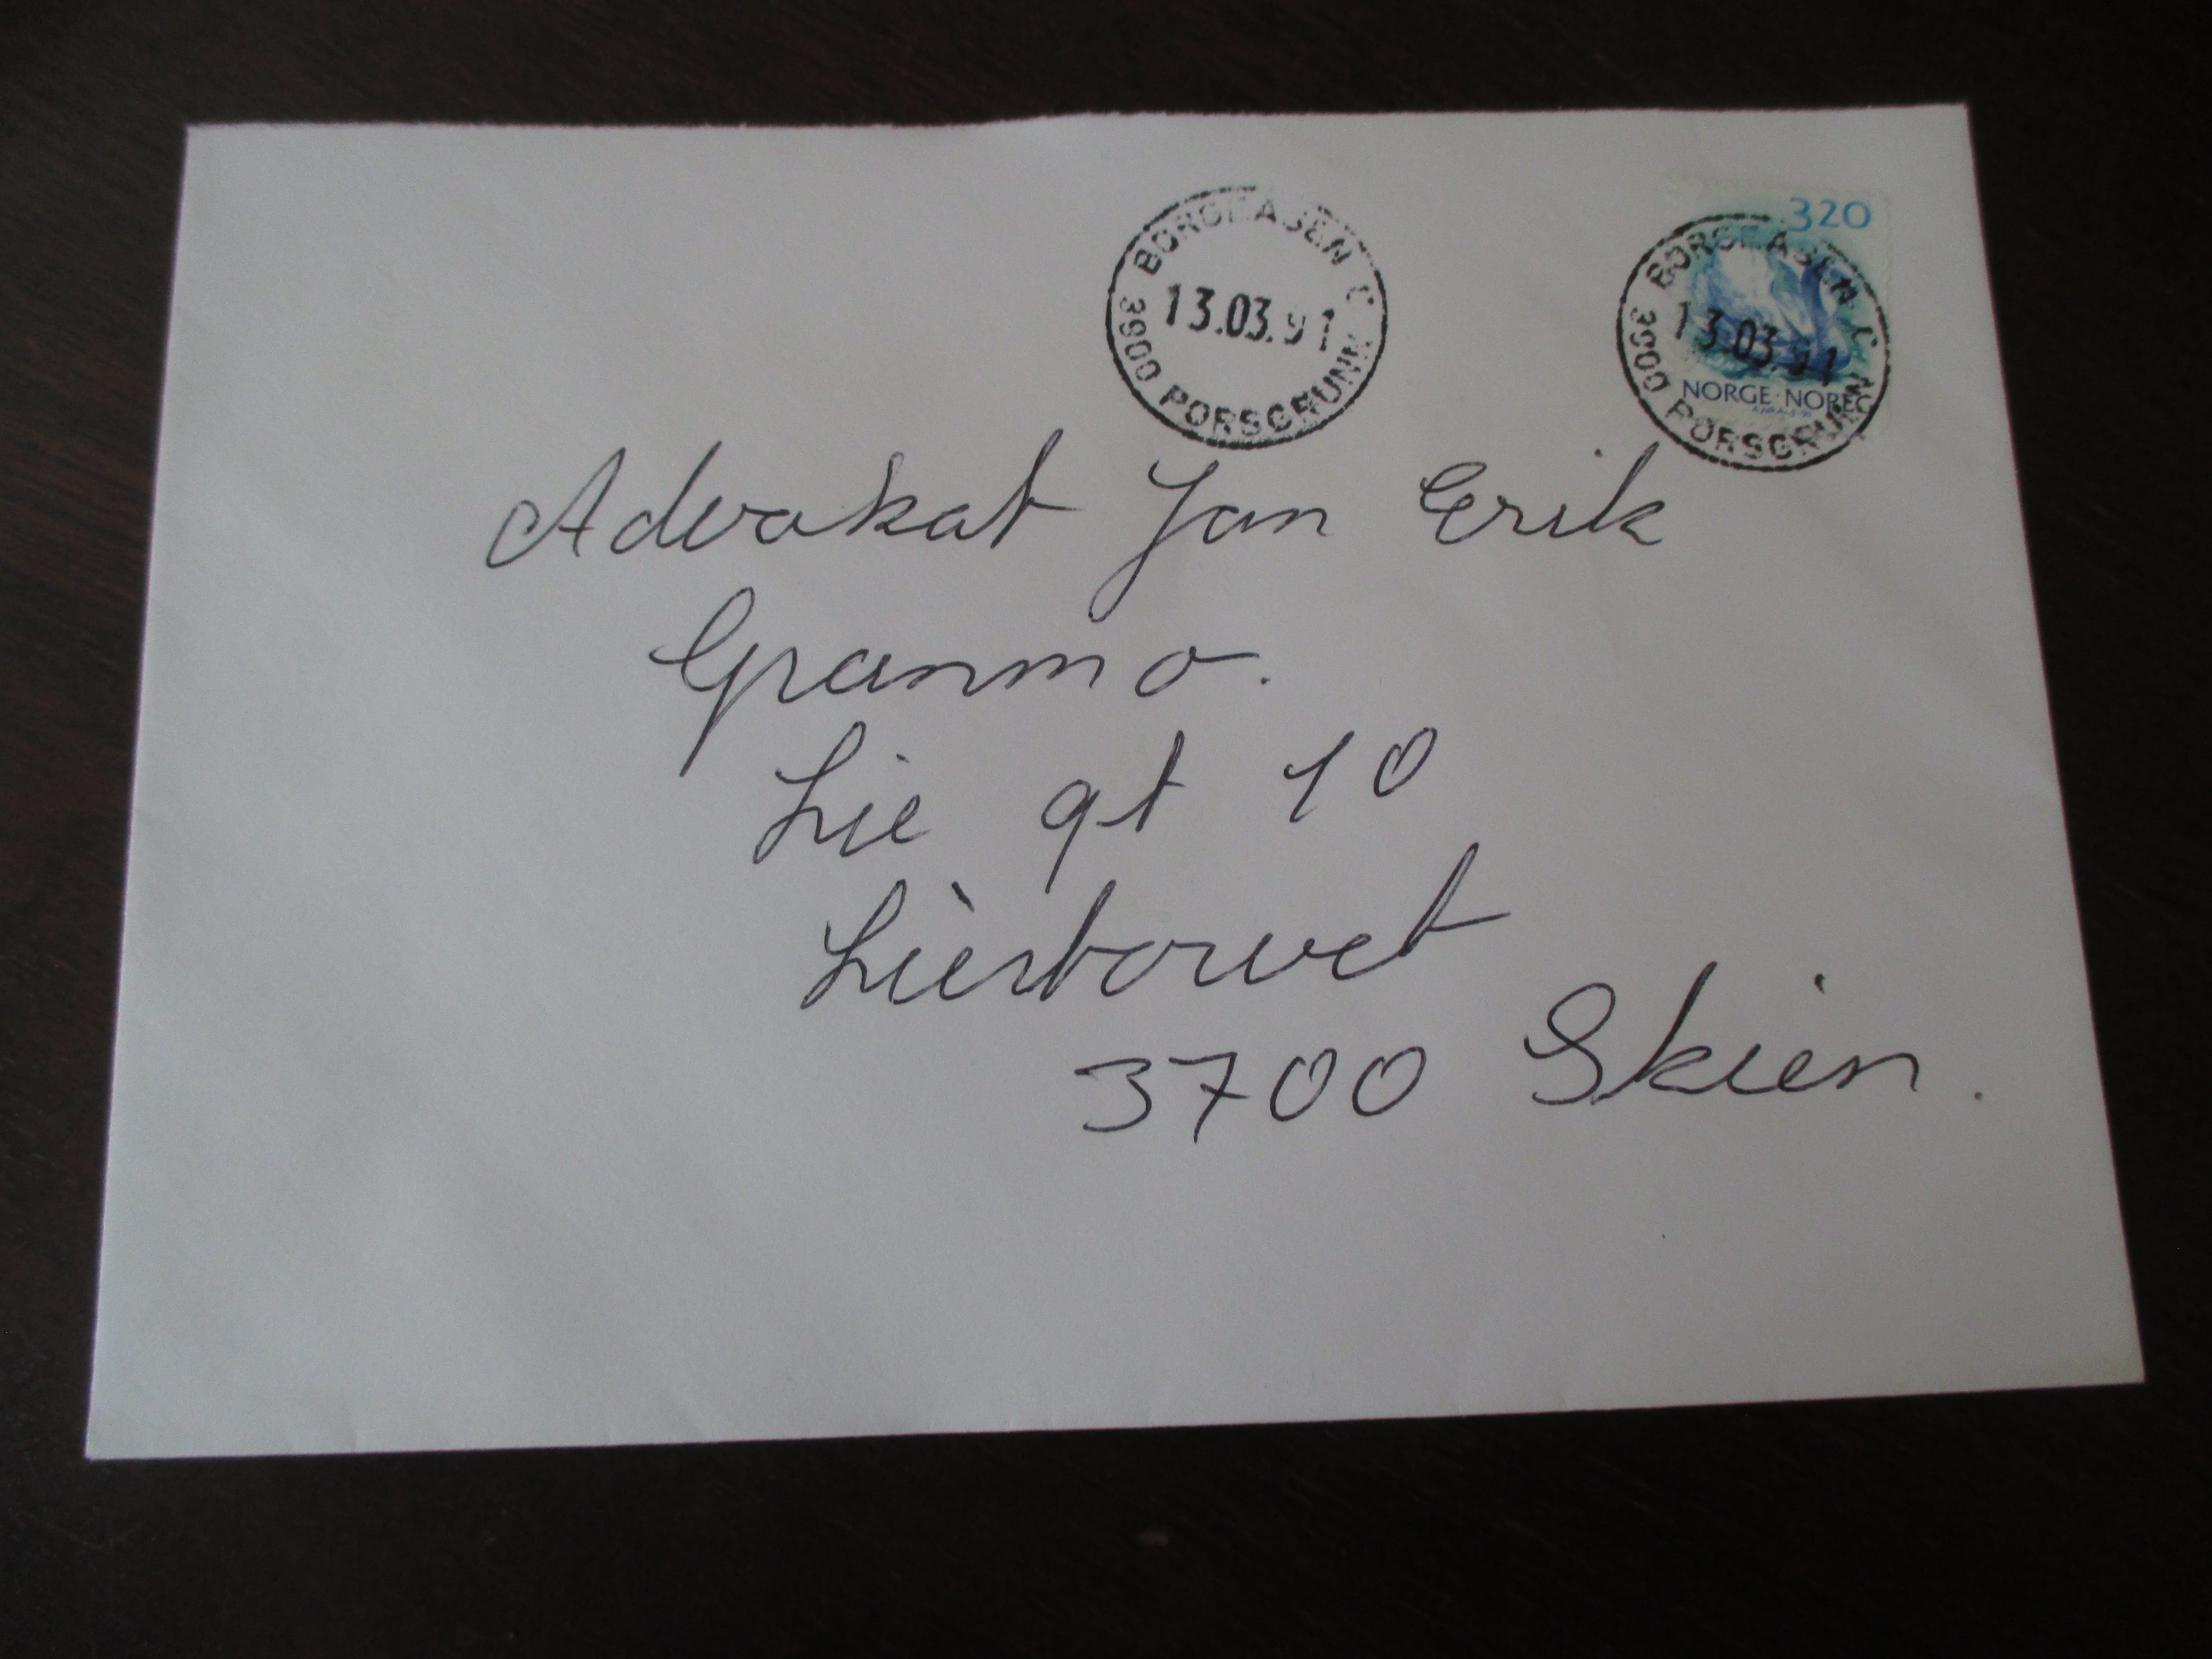 320
NORGE·NOREG
BORGEÅSEN C
13.03.91
3900 PORSGRUNN
BORGEÅSEN C
13.03.91
3900 PORSGRUNN
Advokat Jan Erik
Granmo.
Lie gt 10
Liertorvet
3700 Skien.